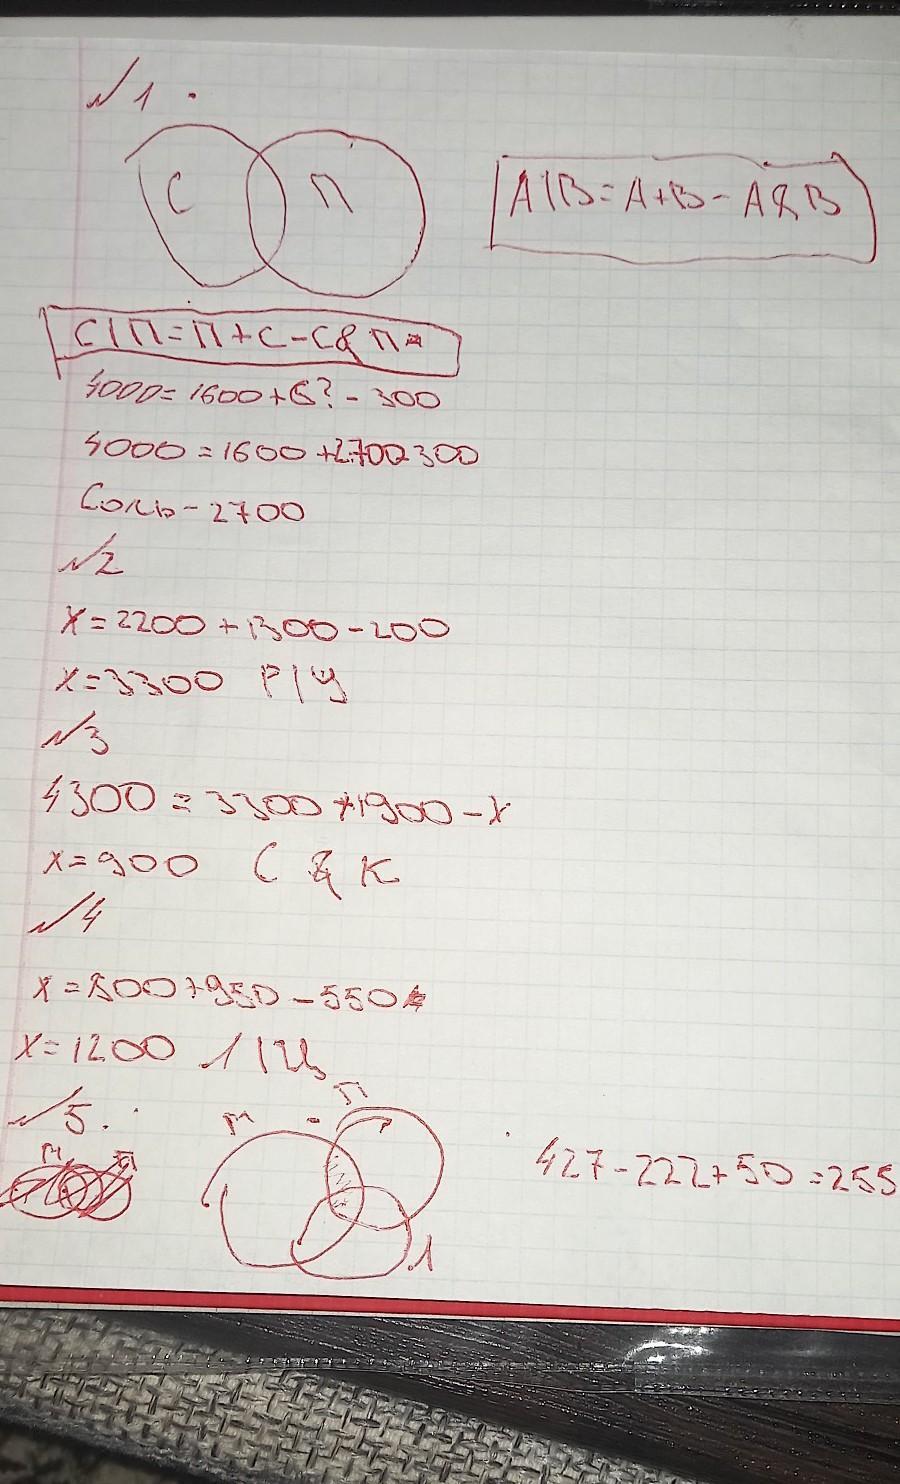 №1.
С П
A|B=A+B-A&B
С|П=П+С-С&П
4000=1600+С?-300
4000=1600+2700-300
Соль-2700
№2
X=2200+1300-200
X=3300 Р|У
№3
4300=3300+1900-X
X=900 С & К
№4
X=800+950-550
X=1200 Л|Ц
№5.
М П
М П
427-222+50=255
Л